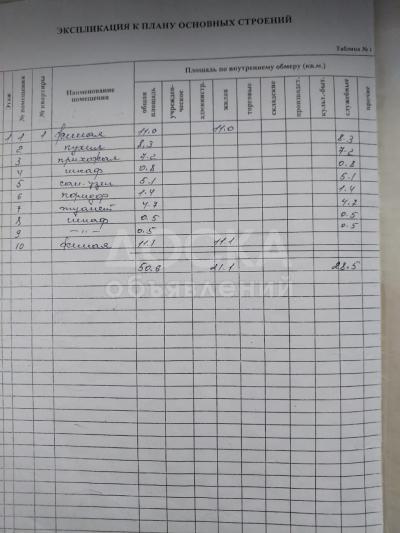 ЭКСПЛИКАЦИЯ К ПЛАНУ ОСНОВНЫХ СТРОЕНИЙ
Таблица № 1
Этаж № помещения № квартиры Наименование помещения Площадь по внутреннему обмеру (кв.м.)
общая площадь учрежден-ческое администр. жилая торговые складские производст. культ.-быт. служебные прочие
1 1 1 жилая 11.0 11.0
2 кухня 8.3 8.3
3 прихожая 7.2 7.2
4 шкаф 0.8 0.8
5 сан.узел 5.1 5.1
6 коридор 1.4 1.4
7 4.7 4.7
8 шкаф 0.5 0.5
9 -"- 0.5 0.5
10 жилая 11.1 11.1
50.6 28.5
ДОСКА
объявлений